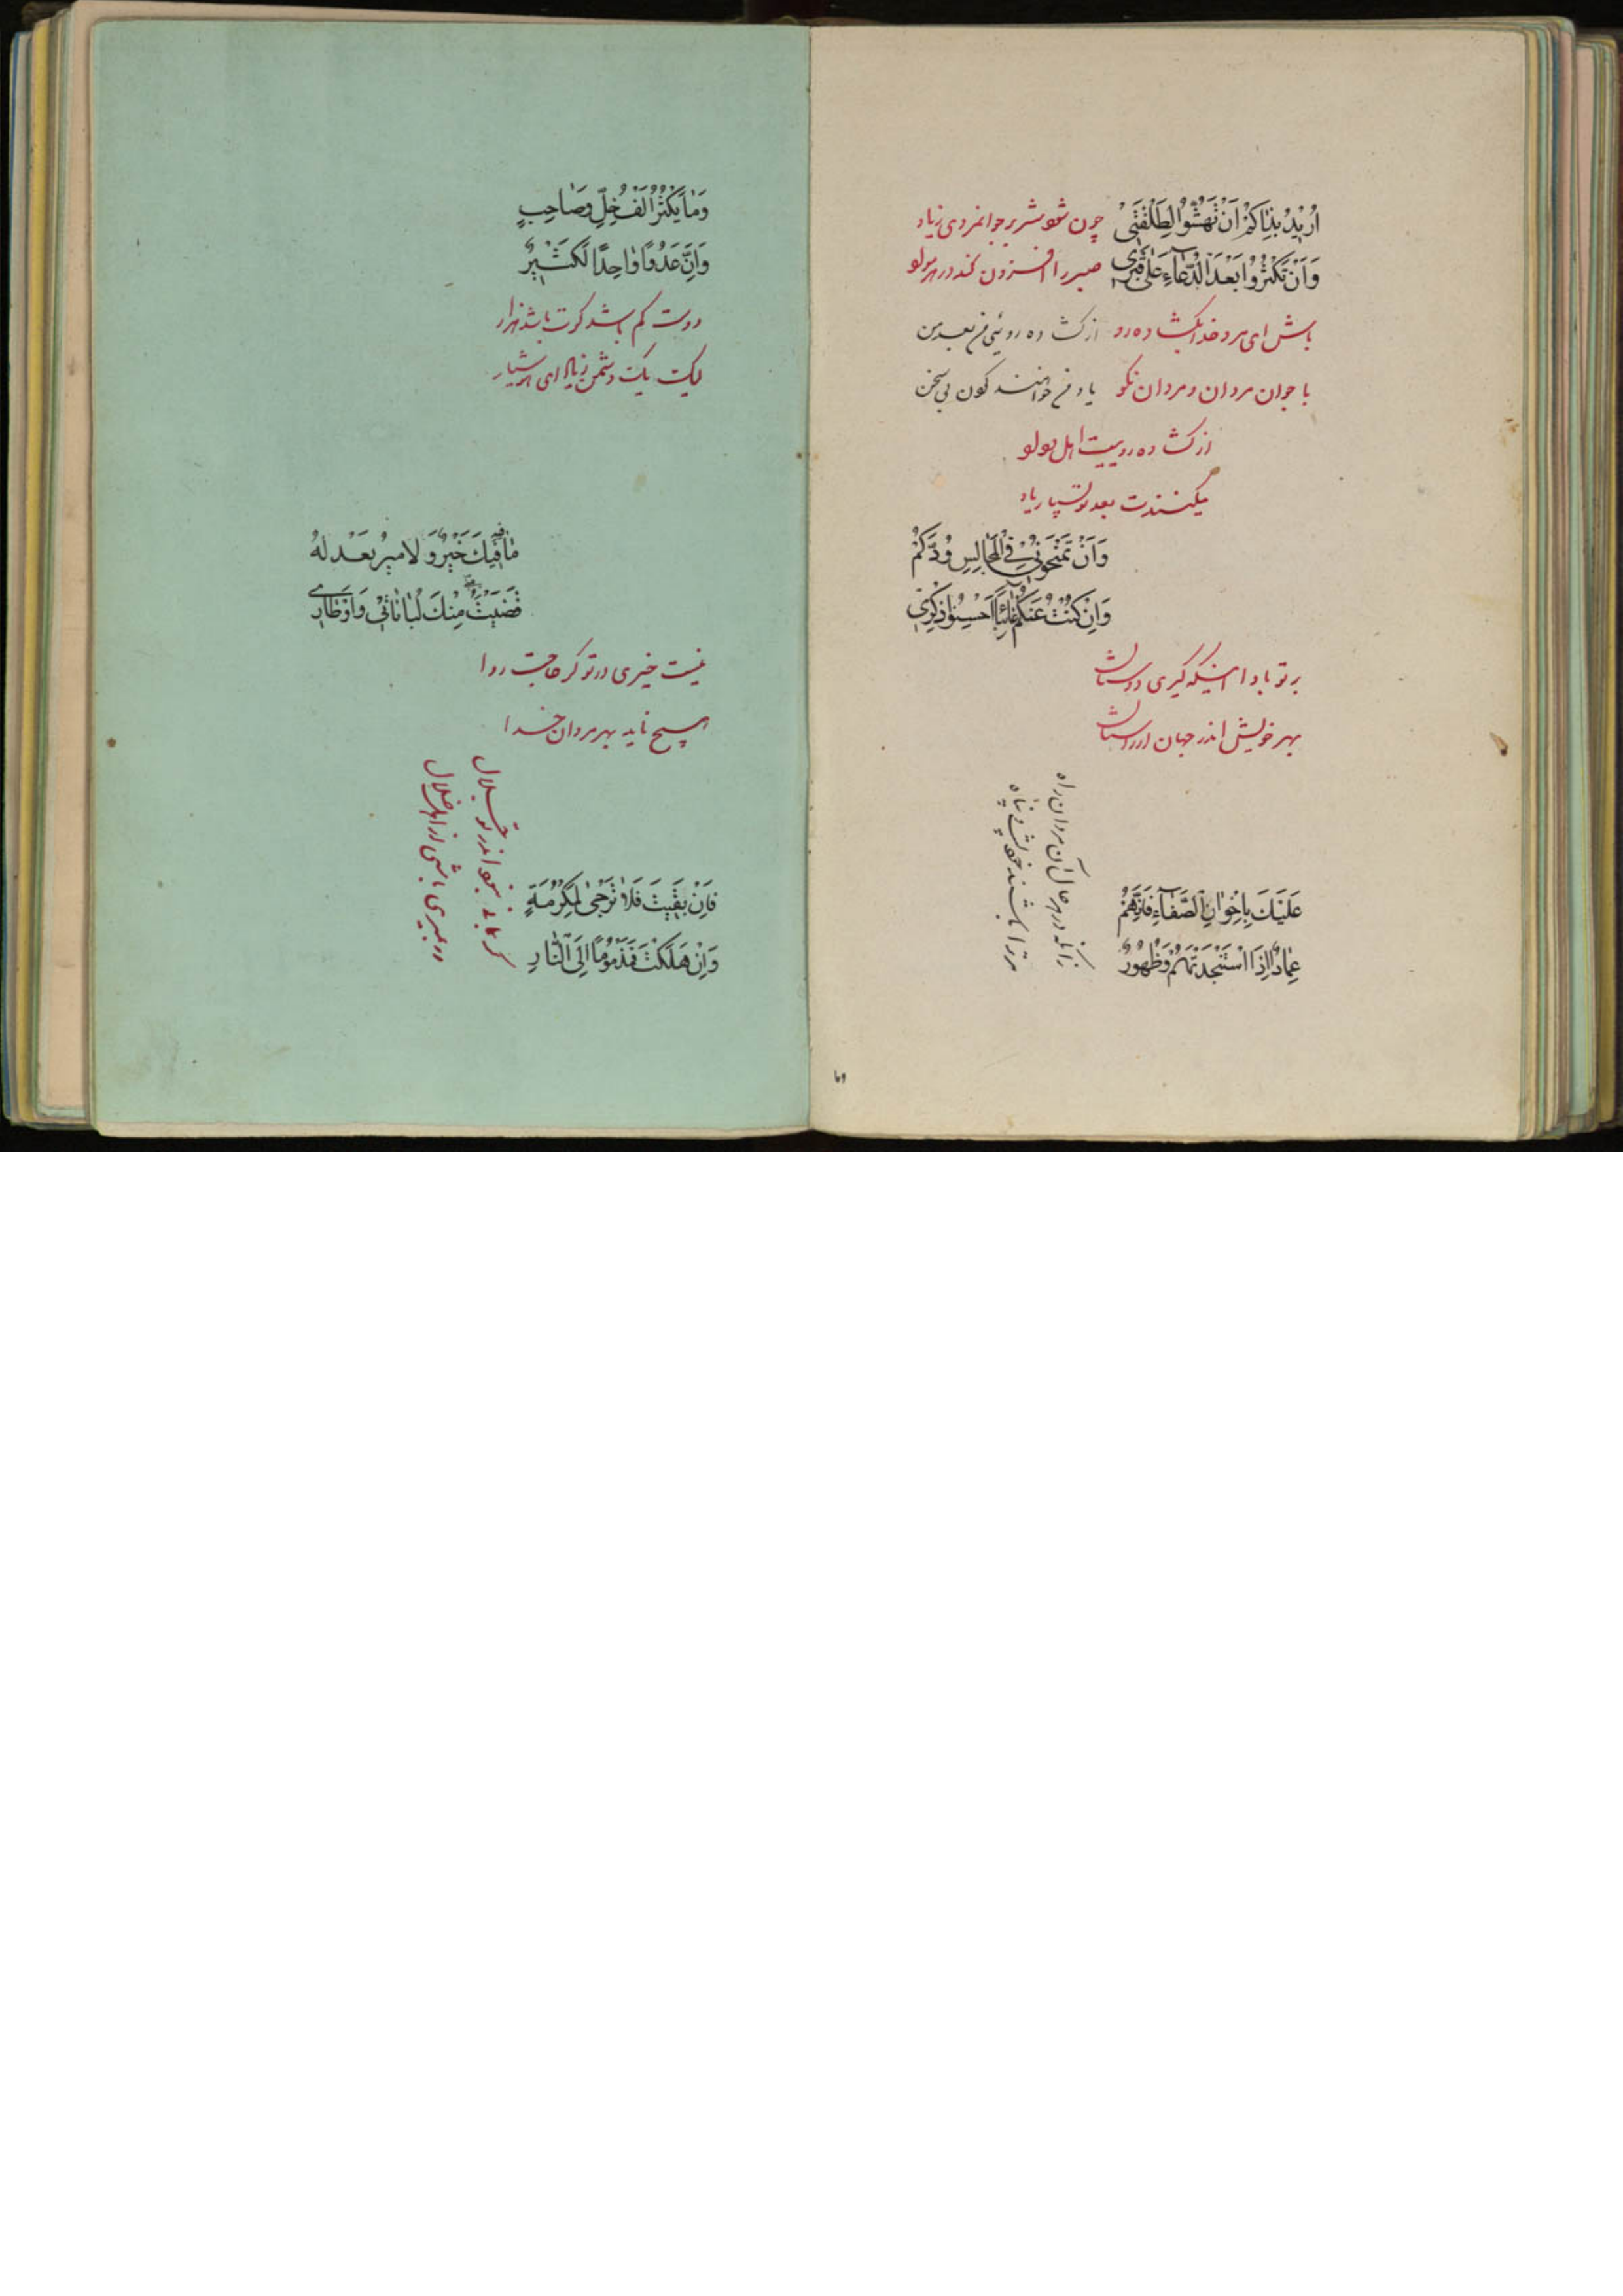 اُرٖیدُ بِذٰاکُمْ اَنْ تَهُشُّوا لِطَلْقَتٖی
چون شود شریر جوانمردی زیاد
وَاَنْ تُکْثِرُوا بَعْدَ الدُّعٰآءِ عَلٰی قَبْرٖی
صبر را افزون کند در هر بولو
باش ای مرد خدا بگشاده رو
از گشاده روئی بعد من
با جوان مردان و مردان نکو
یاد خوانند کون بی سخن
از گشاده رو اهل بولو
میکنندت بعد تو بسیار یاد
وَاَنْ تَمْنَحُونٖی فِی الْمَجٰالِسِ وُدَّکُمْ
وَاِنْ کُنْتُ عَنْکُمْ غٰآئِبًا اَحْسِنُوا ذِکْرٖی
بر تو بادا اینکه گیری دوستان
بهر خویش اندر جهان از راستان
عَلَیْکَ بِاِخْوٰانِ الصَّفٰآءِ فَاِنَّهُمْ
عِمٰادٌ اِذَا اسْتَنْجَدْتَهُمْ وَظُهُورٌ
زانکه در هر حال آن مردان راه
مر ترا باشند خود پشت و پناه
وَمٰا یَکْثُرُ اَلْفُ خِلٍّ وَصٰاحِبٍ
وَاِنَّ عَدُوًّا وٰاحِدًا لَکَثٖیرٌ
دوست کم باشد گرت باشد هزار
لیک یک دشمن زیاد ای هوشیار
مٰا فٖیکَ خَیْرٌ وَلا میرٌ یُعَدُّ لَهُ
قَضَیْتُ مِنْکَ لُبٰانٰاتٖی وَاَوْطٰارٖی
نیست خیری در تو کز حاجت روا
هیچ ناید بهر مردان خدا
فَاِنْ بَقٖیتَ فَلاٰ تُرْجٰی لِمَکْرُمَةٍ
وَاِنْ هَلَکْتَ فَمَذْمُومًا اِلَی النّٰارِ
گر بمانی نبود اندر تو جلال
ور بمیری باشی از اهل ضلال